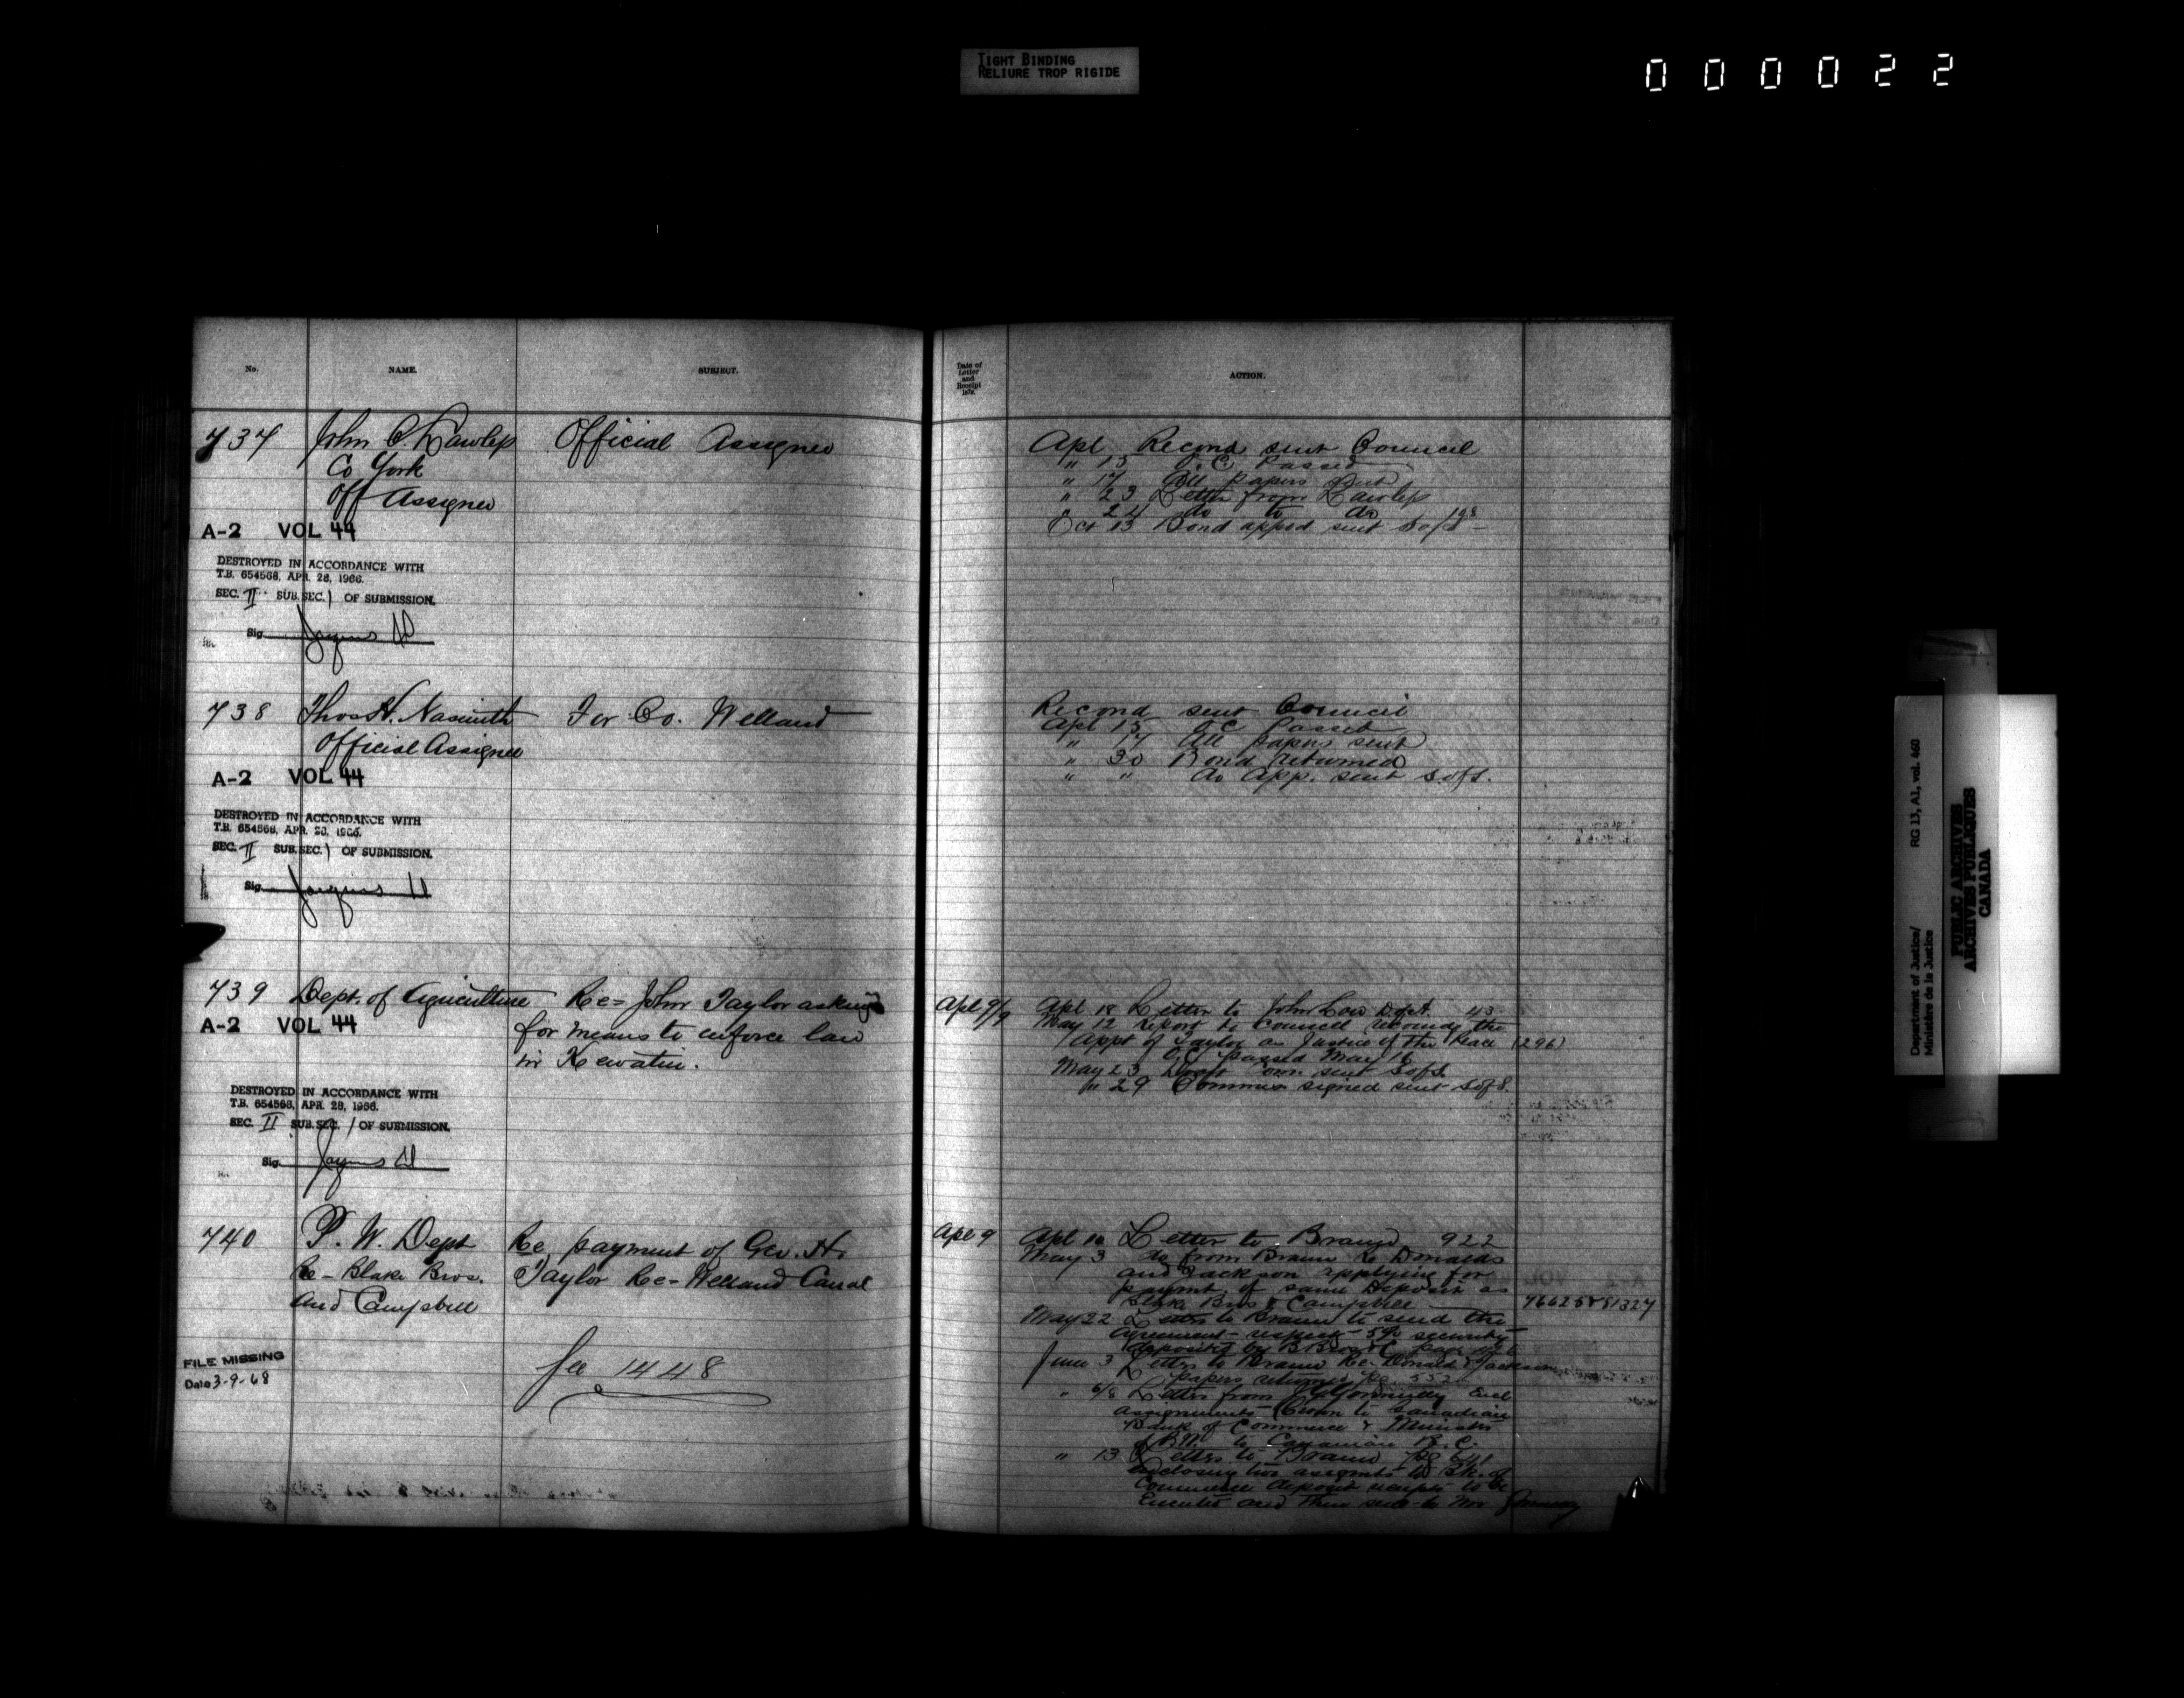 TIGHT BINDING
RELIURE TROP RIGIDE
000022
No.
NAME.
SUBJECT.
737 John C. Lawless Official Assignee
Co York
Off Assignee
A-2 VOL 44
DESTROYED IN ACCORDANCE WITH
T.B. 654568, APR. 28, 1966.
SEC. II SUB.SEC. 1 OF SUBMISSION.
Sig.
738 Thos H. Nasmith For Co. Welland
Official Assignee
A-2 VOL 44
DESTROYED IN ACCORDANCE WITH
T.B. 654568, APR. 28, 1966.
SEC. II SUB.SEC. 1 OF SUBMISSION.
Sig.
739 Dept. of Agriculture Re= John Taylor asking
for means to enforce law
in Keewatin.
A-2 VOL 44
DESTROYED IN ACCORDANCE WITH
T.B. 654568, APR. 28, 1966.
SEC. II SUB.SEC. 1 OF SUBMISSION.
Sig.
740 P. W. Dept Re payment of Geo. H.
Re- Blake Bros. Taylor Re= Welland Canal
and Campbell
FILE MISSING
Date 3-9-68
See 1448
Date of
Letter
and
Receipt
ACTION.
Apl Recomd sent Council
" 15 O.C. Passed
" 17 All papers sent
" 23 Letter from Lawless
" 24 do to do 198
Oct 13 Bond apped sent S of S
Recomd sent Council
Apl 15 O C Passed
" 17 All papers sent
" 30 Bond returned
" " do App. sent S of S.
Apl 9/9 Apl 18 Letter to John Low DofA. 43
May 12 report to council recomdg the
Appt of Taylor as Justice of the Peace (296)
O.C. passed May 16
May 23 Draft Com sent S of S
" 29 Commis signed sent S of S.
Apl 9 Apl 10 Letter to Braun 922
May 3 do from Braun Re Donalds
and Jackson applying for
paymt of same Deposit as
Blake Bros & Campbell 76625 & 81327
May 22 Letter to Braun to send the
Agreement respectg 5% security
deposited by B Bros & C page
June 3 Letter to Braun Re Donald & Jackson
papers returned Pg. 552
" 6/8 Letter from Gormully Encl
assignments Crown to Canadian
Bank of Commerce & Minister
of P.W. to Canadian B. C.
" 13 Letter to Braun Pg 641
enclosing two assgmts to Bk. of
Commerce deposit receipts to be
Executed and then sent to Mr Gormully
Department of Justice/
Ministère de la Justice
RG 13, A1, vol. 460
PUBLIC ARCHIVES
ARCHIVES PUBLIQUES
CANADA